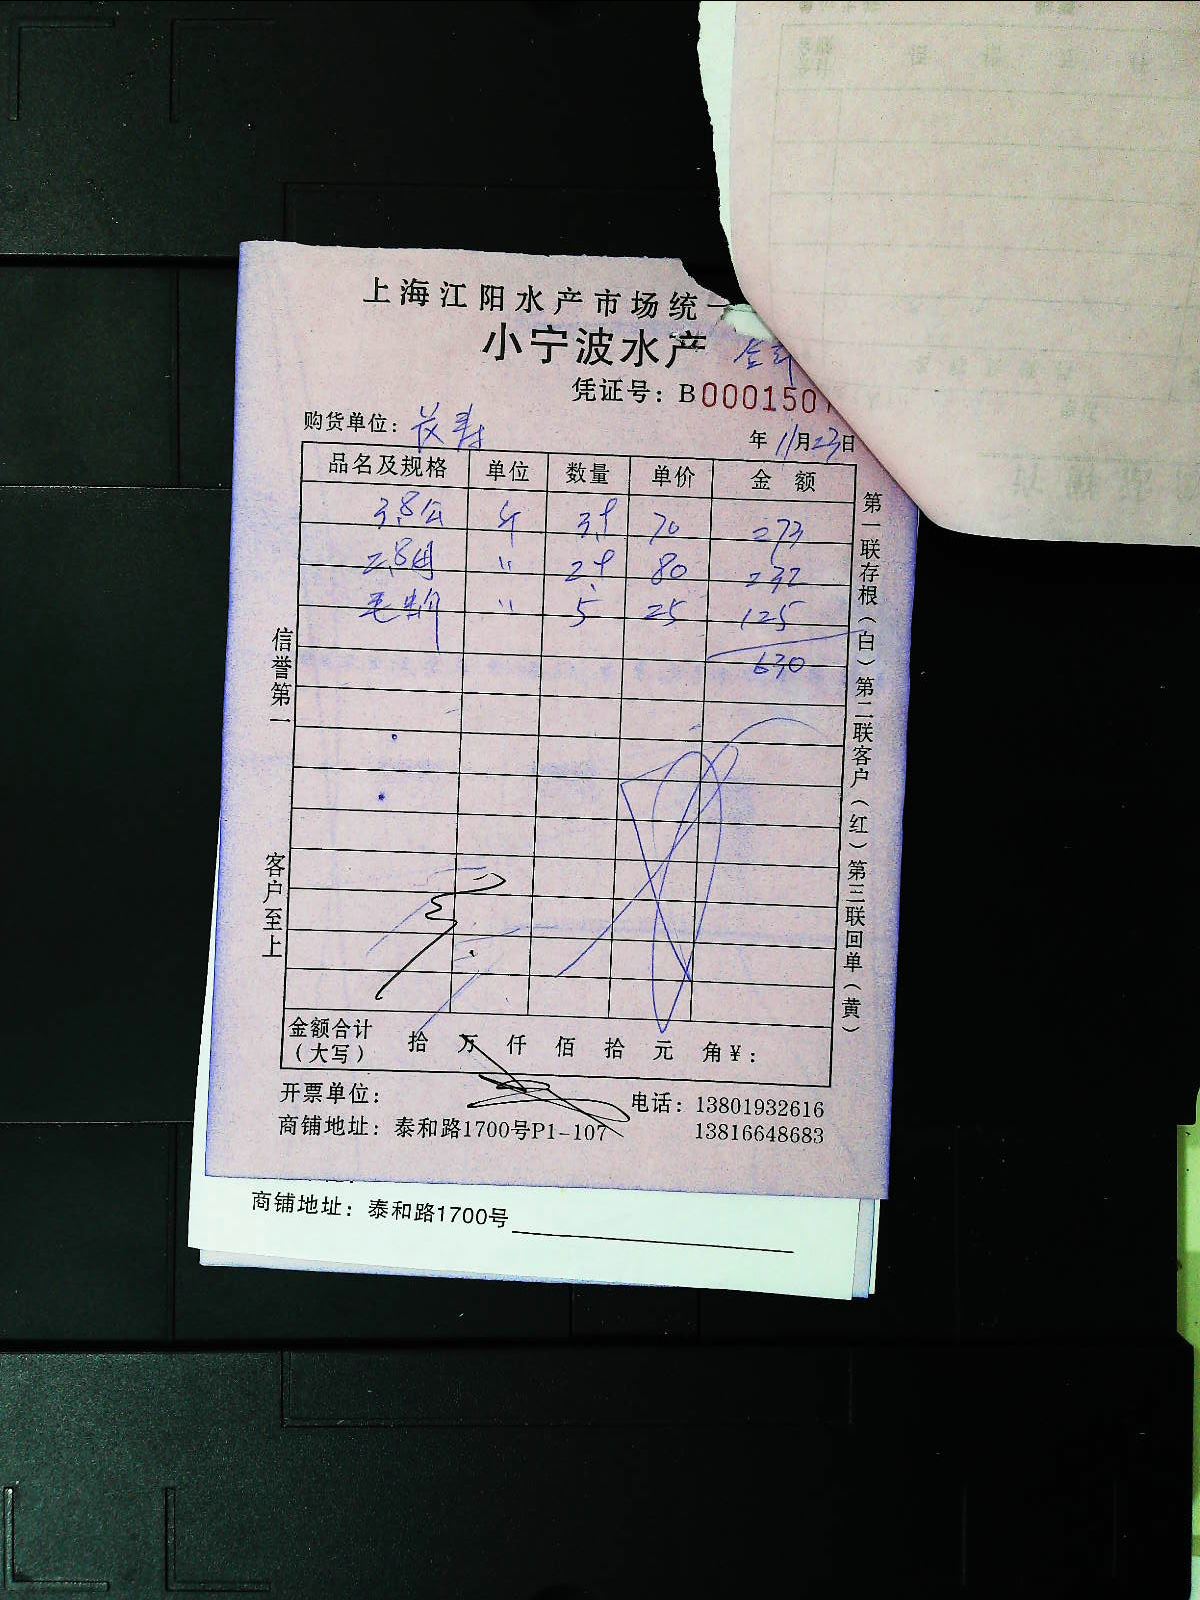 上海江阳水产市场统一
小宁波水产
凭证号：B0001507
购货单位：长寿
年11月23日
品名及规格 单位 数量 单价 金额
3.8公 斤 39 70 273
2.8母 〃 29 80 232
毛蚶 〃 5 25 125
630
信誉第一
客户至上
第一联存根（白）第二联客户（红）第三联回单（黄）
金额合计（大写） 拾 万 仟 佰 拾 元 角￥：
开票单位：
电话：13801932616
13816648683
商铺地址：泰和路1700号P1-107
商铺地址：泰和路1700号